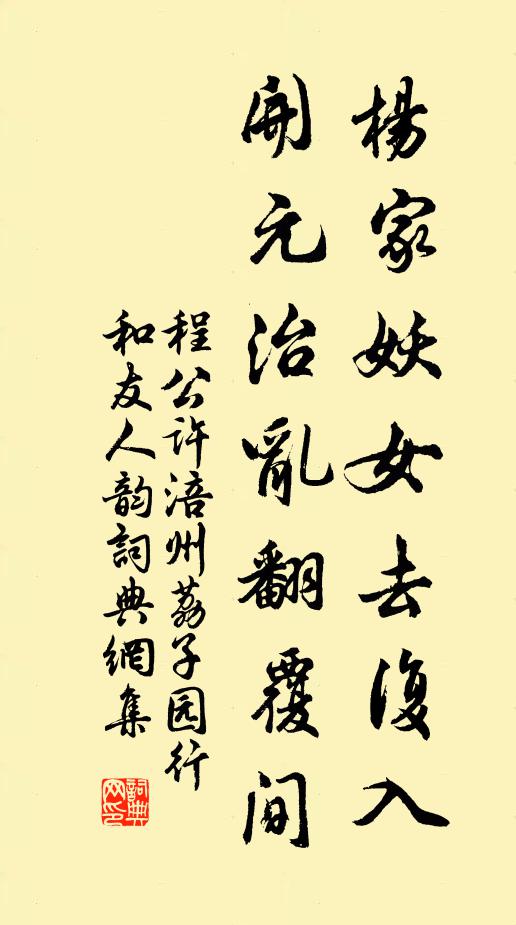 楊家妖女去復入
開元治亂翻覆間
程公許涪州荔子园行
和友人韵詞典網集
詞典网印